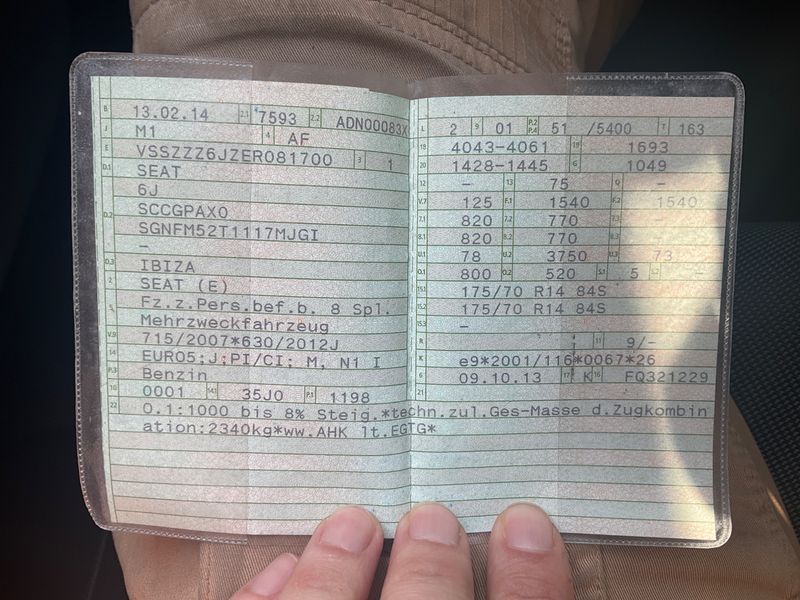 B 13.02.14 2.1 7593 2.2 ADN00083X
J M1 4 AF
E VSSZZZ6JZER081700 3 1
D.1 SEAT
6J
D.2 SCCGPAX0
SGNFM52T1117MJGI
–
D.3 IBIZA
2 SEAT (E)
5 Fz.z.Pers.bef.b. 8 Spl.
Mehrzweckfahrzeug
V.9 715/2007*630/2012J
14 EURO5;J;PI/CI; M, N1 I
P.3 Benzin
10 0001 14.1 35J0 P.1 1198
22 O.1:1000 bis 8% Steig.*techn.zul.Ges-Masse d.Zugkombin
ation:2340kg*ww.AHK lt.EGTG*
L 2 9 01 P.2 P.4 51 /5400 T 163
18 4043-4061 19 1693
20 1428-1445 G 1049
12 – 13 75 Q –
V.7 125 F.1 1540 F.2 1540
7.1 820 7.2 770 7.3 –
8.1 820 8.2 770 8.3
U.1 78 U.2 3750 U.3 73
O.1 800 O.2 520 S.1 5 S.2 –
15.1 175/70 R14 84S
15.2 175/70 R14 84S
15.3 –
R 11 9/–
K e9*2001/116*0067*26
6 09.10.13 17 K 16 FQ321229
21